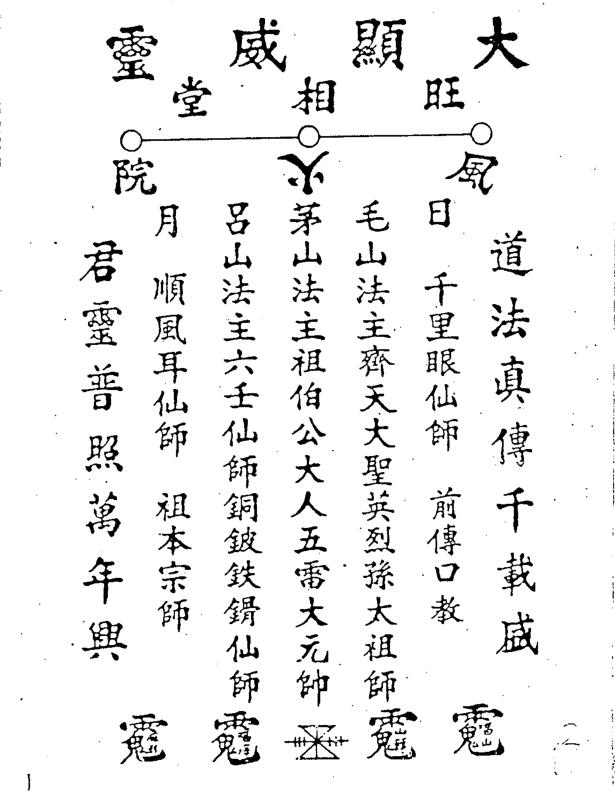 大顯威靈
旺相堂
風火院
道法眞傳千載盛
日 千里眼仙師 前傳口教
毛山法主齊天大聖英烈孫太祖師
茅山法主祖伯公大人五雷大元帥
呂山法主六壬仙師銅鈹鉄仙師
月 順風耳仙師 祖本宗師
君靈普照萬年興